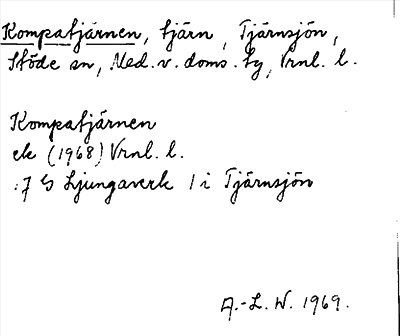 Kompatjärnen, tjärn, Tjärnsjön,
Stöde sn, Med.v.doms.tg, Vrnl. l.
Kompatjärnen
ek (1968) Vrnl. l.
:7 G Ljungaverk 1 i Tjärnsjön
A.-L. W. 1969.